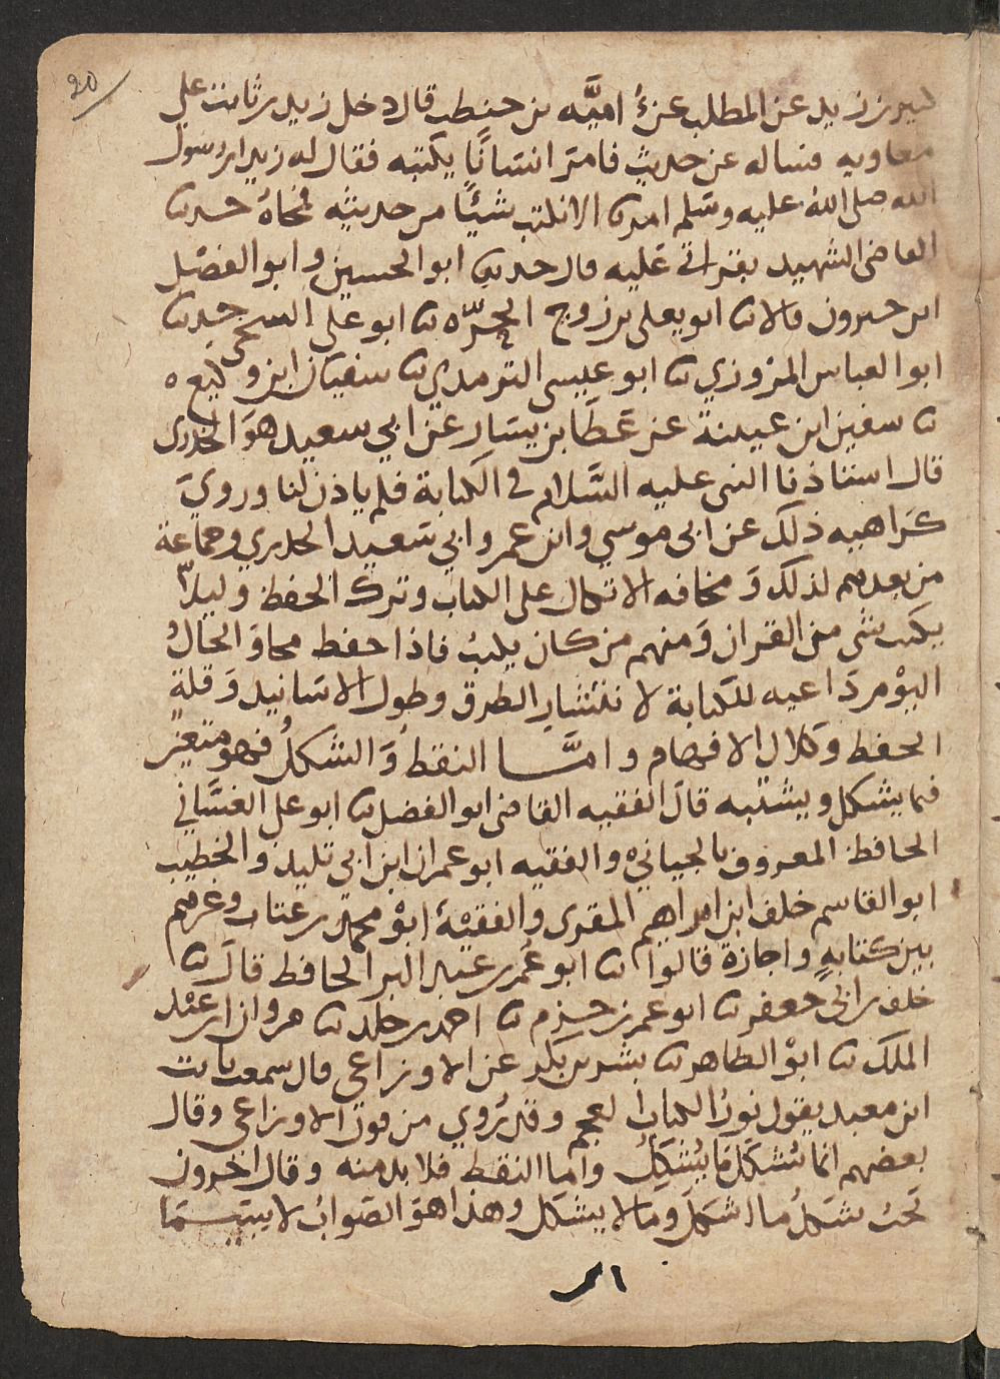 20
كثير بن زيد عن المطلب عن أمية بن حنطب قال دخل زيد بن ثابت على
معاويه فساله عن حديث فامر انسانًا يكتبه فقال له زيد ان رسول
الله صلى الله عليه وسلم امرنا الا نكتب شيئًا من حديثه فمحاه حدثنا
القاضي الشهيد بقراتي عليه قال حدثنا ابو الحسين وابو الفضل
ابن خيرون قالا نا ابو يعلى بن زوج الحرّه نا ابو على السنجي حدثنا
ابو العباس المروزي نا ابو عيسى الترمذي نا سفيان ابن وكيع ه
نا سفين ابن عيينة عن عطا بن يسار عن ابي سعيد هو الخدري
قال استاذنا النبي عليه السَّلام في الكتابة فلم ياذن لنا وروي
كراهيه ذلك عن ابي موسي وابن عمر وابي سعيد الخدري وجماعة
من بعدهم لذلك و مخافه الاتكال على الكتاب وترك الحفظ وليلّا
يكتب شي مع القران ومنهم من كان يكتب فاذا حفظ محا و الحال
اليوم داعيه للكتابة لانتشار الطرق وطول الاسانيد وقلة
الحفظ وكلال الافهام وامَّا النقط و الشكل فهو متعين
فيما يشكل ويشتبه قال الفقيه القاضي ابو الفضل نا ابو على الغسَّاني
الحافظ المعروف بالجياني والفقيه ابو عمران ابن ابي تليد والخطيب
ابو القاسم خلف ابن ابراهيم المقرى والفقيه ابو محمد بن عتاب وغيرهم
بين كتابه واجازة قالوا نا ابو عمر بن عبد البر الحافظ قال نا
خلف بن ابي جعفر نا ابو عمر بن حزم نا احمد بن خلد نا مروان ابن عبد
الملك نا ابو الطاهر نا بشر بن بكر عن الاوزاعي قال سمعت ثابت
ابن معبد يقول نور الكتاب العجم وقد روي من قول الاوزاعي وقال
بعضهم انما يشكل ما يشكل واما النقط فلا بد منه وقال اخرون
يجب شكل ما اشكل وما لا يشكل وهذا هو الصواب لا سيَّما